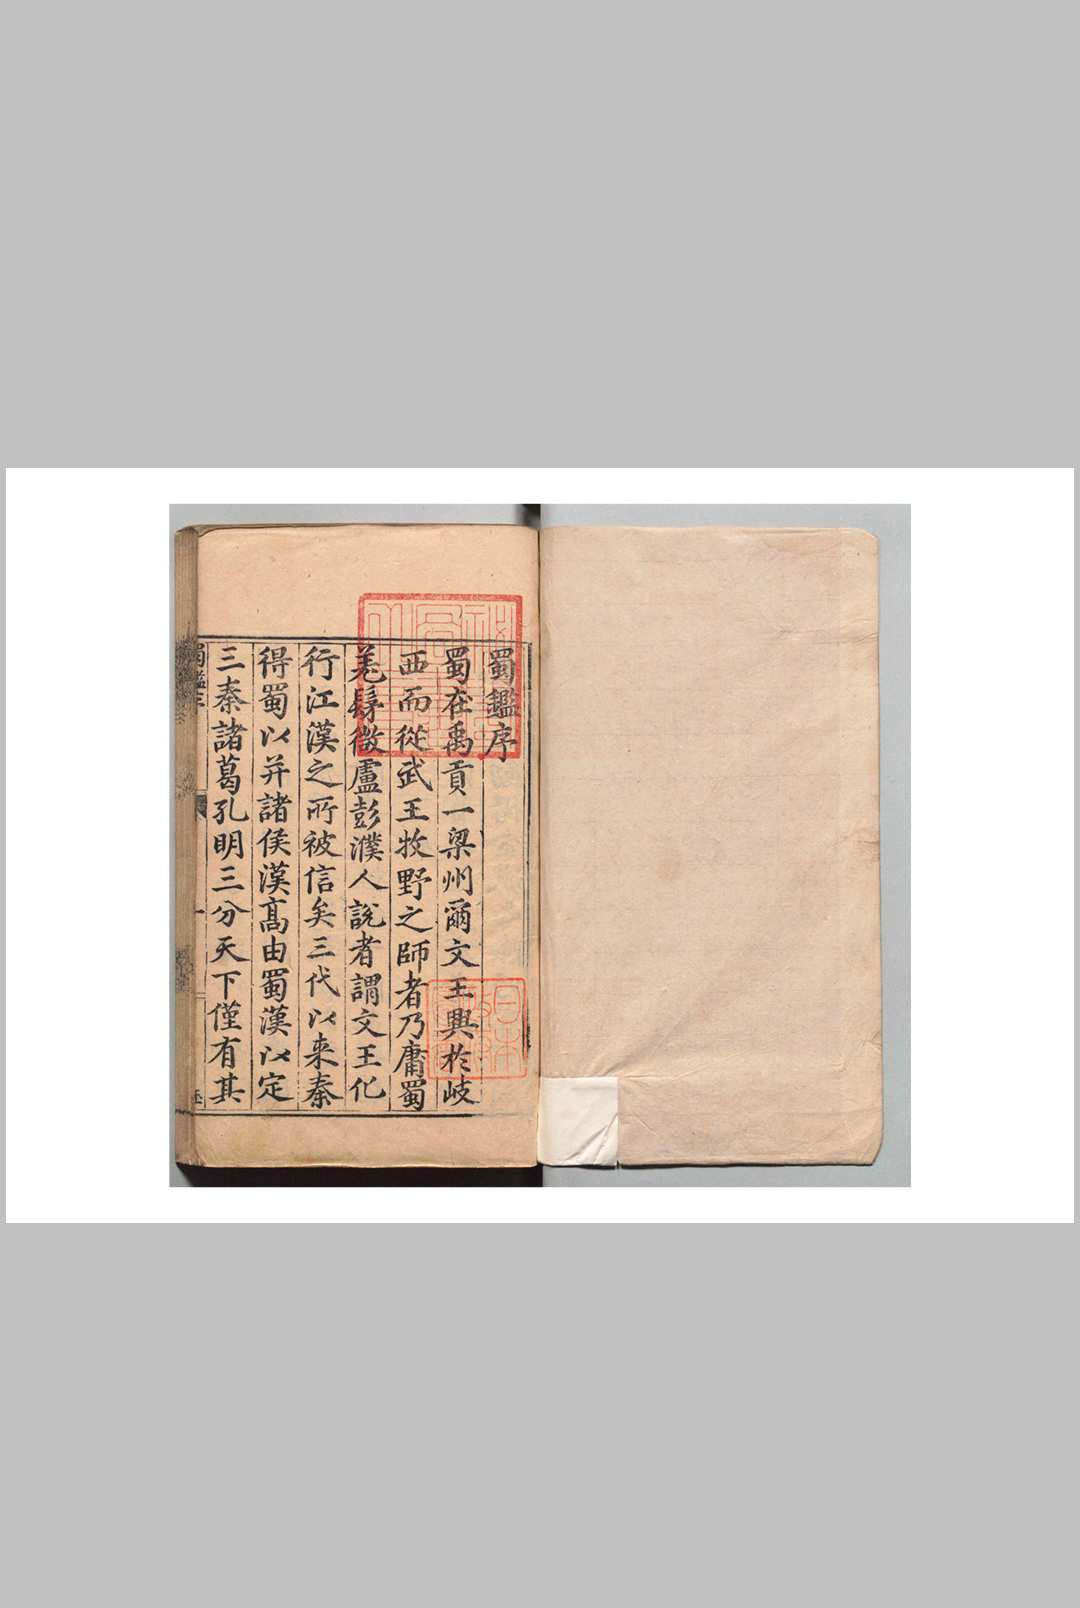 蜀鑑序
蜀在禹貢一梁州爾文王興於岐
西而從武王牧野之師者乃庸蜀
羌髳微盧彭濮人說者謂文王化
行江漢之所被信矣三代以来秦
得蜀以并諸侯漢髙由蜀漢以定
三秦諸葛孔明三分天下僅有其
蜀鑑序
日本